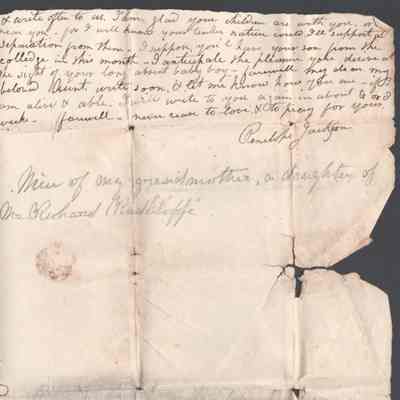 & write often to us. I am glad your children are with you, or
near you - for I well know your tender nature could ill support a
separation from them. I suppose you'll have your son from the
colledge in this month - I anticipate the pleasure you'll derive at
the sight of your long absent baby boy - farewell my dear my
beloved Aunt. write soon, & let me know how you are - if I
am alive & able. I will write to you again in about 6 or 8
weeks. farewell - never cease to love & to pray for your
Penelope Jackson
Niece of my grandmother, a daughter of
Mr Richard